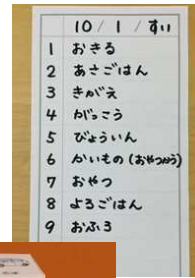 10 / 1 / すい
1 おきる
2 あさごはん
3 きがえ
4 がっこう
5 びょういん
6 かいもの (おやつかう)
7 おやつ
8 よるごはん
9 おふろ